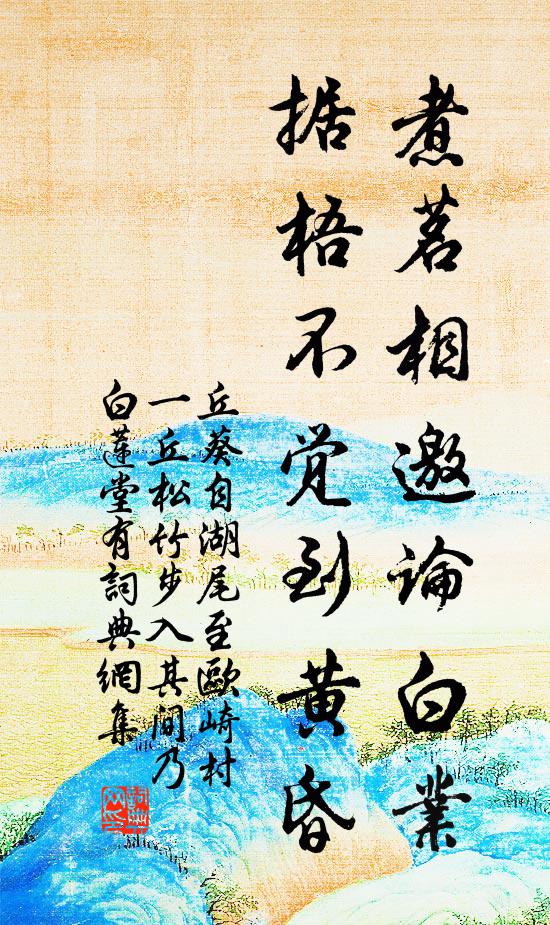 煮茗相邀論白業
据梧不觉到黄昏
丘葵自湖尾至歐崎村
一丘松竹步入其間乃
白蓮堂有詞典網集